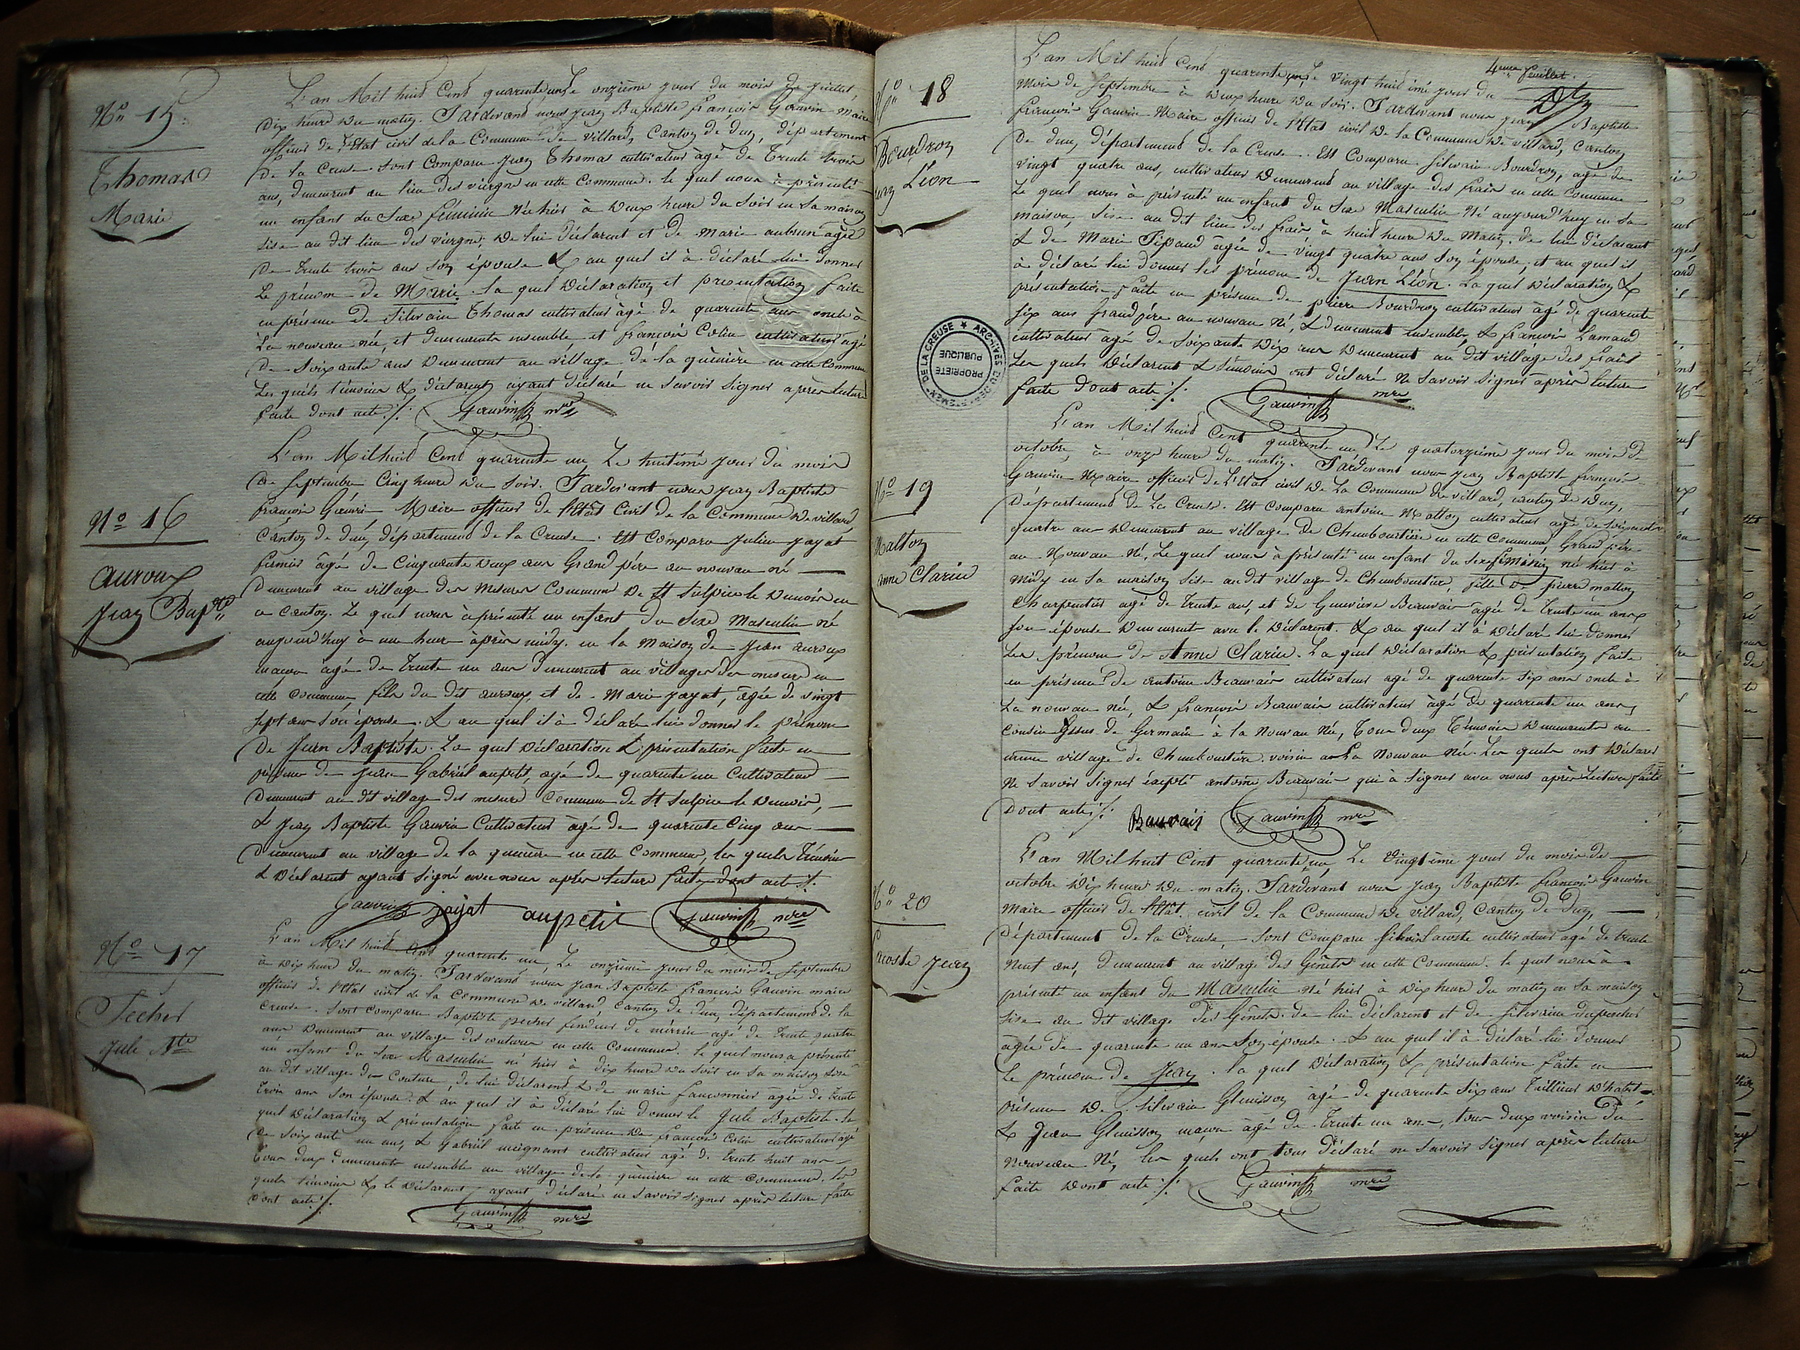 Nº 15
Thomas
Marie
L'an Mil huit Cent quarante un, Le onzième jour du mois de Juillet,
dix heure du matin. Pardevant nous jean Baptiste françois Gauvin Maire
officier de l'Etat civil de la Commune de Villard, Canton de dun, département
De la Creuse. Sont Comparu jean Thomas cultivateur âgé de Trente trois
ans, demeurant au lieu des viergne en cette Commune. le quel nous à présenté
un enfant du Sexe feminin né hier à deux heure du Soir en Sa maison
sise au dit lieu des viergne, De lui déclarant et de Marie aubrun agée
De Trente trois ans Son épouse & au quel il à déclaré lui donner
Le prénom de Marie. la quel déclaration et presentation faite
en présence de Silvain Thomas cultivateur âgé de quarante ans oncle à
La nouveau née, et demeurants ensemble et françois Colin cultivateur agé
De Soixante ans demeurant au village de la guémire en cette Commune
Les quels témoins & déclarant ayant déclaré ne Savoir Signer après lecture
faite dont acte ./.
Gauvin mre
Nº 16
auroux
jean Bapte
L'an Mil huit Cent quarante un, Le huitième jour du mois
de Septembre Cinq heure du Soir. Pardevant nous jean Baptiste
françois Gauvin Maire officier de l'Etat Civil de la Commune de villard,
Canton de dun, département de la Creuse. Est Comparu julien jayat
fermier âgé de Cinquante deux ans Grand père au nouveau né
demeurant au village des Mesures Commune de St Sulpice le dunois en
ce Canton. Le quel nous à présenté un enfant du Sexe Masculin né
aujourd'huy à une heure après midy. en la Maison de jean auroux
maçon agé de Trente un ans demeurant au village des mesures en
cette Commune, fils du dit auroux, et de Marie jayat, agée de vingt
Sept ans Son épouse. & au quel il à déclaré lui donner le prénom
De Jean Baptiste. La quel déclaration & présentation faite en
présence de jean Gabriël aupetit, agé de quarante un Cultivateur
demeurant au dit village des mesures Commune de St Sulpice le dunois,
& jean Baptiste Gauvin Cultivateur âgé de quarante Cinq ans
demeurant au village de la guémire en cette Commune, les quels témoins
& déclarant ayant Signé avec nous après lecture faite dont acte ./.
Gauvin jayat aupetit Gauvin mre
Nº 17
Pecher
jule Bte
L'an Mil huit Cent quarante un, Le onzième jour du mois de Septembre
à dix heure du matin. Pardevant nous jean Baptiste françois Gauvin maire
officier de l'Etat civil de la Commune de villard, Canton de dun, département de la
Creuse. Sont comparu Baptiste pecher fendeur de mérrin agé de Trente quatre
ans demeurant au village des coutures en cette Commune. le quel nous à présenté
un enfant du Sexe Masculin né hier à dix heure du Soir en Sa maison Sise
au dit village de Couture, de lui déclarant & de marie fauconnier agée de Trente
Trois ans Son épouse. & au quel il à déclaré lui donner le jule Baptiste. la
quel déclaration & présentation faite en présence de françois Colin cultivateur agé
de Soixante un ans, & Gabriël meignant cultivateur agé de Trente huit ans
Tous deux demeurants ensemble au village de la guémire en cette Commune. les
quels témoins & le déclarant ayant déclaré ne Savoir Signer après lecture faite
dont acte ./.
Gauvin mre
4ème feuillet.
Nº 18
Bourdron
jean Léon
L'an Mil huit Cent quarante un, Le vingt huitième jour du
Mois de Septembre à deux heure du Soir. Pardevant nous jean Baptiste
françois Gauvin Maire officier de l'Etat civil de la Commune de villard, Canton
De dun, département de la Creuse. Est Comparu Silvain Bourdron, agé de
vingt quatre ans, cultivateur demeurant au village des frais en cette Commune
Le quel nous à présenté un enfant du Sexe Masculin né aujourd'huy en Sa
maison, Sise au dit lieu des frais à huit heure du Matin. de lui déclarant
& de Marie Pipaud âgée de vingt quatre ans Son épouse, et au quel il
à déclaré lui donner les prénom de Jean Léon. La quel déclaration &
présentation faite en présence de pierre Bourdron cultivateur âgé de quarante
Six ans Grand père au nouveau né, & demeurant ensemble, & françois Lamaud
cultivateur âgé de Soixante dix ans demeurant au dit village des frais
Les quels déclarant & témoins ont déclaré ne Savoir Signer après lecture
faite dont acte ./.
Gauvin mre
ARCHIVES DU DEPARTEMENT DE LA CREUSE
PROPRIETE PUBLIQUE
Nº 19
Malton
anne Clarice
L'an Mil huit Cent quarante un, Le quatorzième jour du mois de
octobre, à onze heure du matin. Pardevant nous jean Baptiste françois
Gauvin Maire officier de l'Etat civil de La Commune de villard, canton de dun,
département de La Creuse. Est Comparu antoine Malton cultivateur agé de Soixante
quatre ans demeurant au village de Chambouttière en cette Commune, Grand père
au Nouveau Né, Le quel nous à présenté un enfant du Sexe feminin né hier à
Midy en Sa maison Sise au dit village de Chamboutière, fille de pierre malton
Charpentier agé de Trente ans, et de Genviève Beauvais agée de Trente un ans
Son épouse demeurant avec le déclarant. & au quel il à déclaré lui donner
les prénom de Anne Clarice. La quel déclaration & présentation faite
en présence de antoine Beauvais cultivateur agé de quarante Six ans oncle à
La nouveau née, & françois Beauvais cultivateur âgé de quarante un ans,
cousin Issus de Germain à la Nouveau Né, Tous deux Témoins demeurants au
même village de Chamboutière. voisin a La Nouveau Né. Les quels ont déclaré
ne Savoir Signer éxcépté antoine Beauvais qui à Signer avec nous après Lecture faite
Dont acte ./. Bauvais Gauvin mre
Nº 20
Lacoste jean
L'an Mil huit Cent quarante un, Le vingtième jour du mois de
octobre dix heure du matin. Pardevant nous jean Baptiste françois Gauvin
maire officier de l'Etat civil de la Commune de villard, Canton de dun,
département de la Creuse, Sont comparu Silvin Lacoste cultivateur agé de trente
neuf ans, demeurant au village des Génèts en cette Commune. le quel nous à
présenté un enfant du Masculin Né hier à dix heure du matin en Sa maison
Sise au dit village des Génèts. de lui déclarant et de Silvine Dupecher
agée de quarante un ans Son épouse. & au quel il à déclaré lui donner
le prénom de Jean. la quel déclaration & présentation faite en
présence de Silvain Glenisson âgé de quarante Six ans Tailleur d'habit
& jean Glenisson maçon âgé de Trente un ans, tous deux voisin du
Nouveau Né, les quels ont tous déclaré ne Savoir Signer après lecture
faite dont acte ./.
Gauvin mre